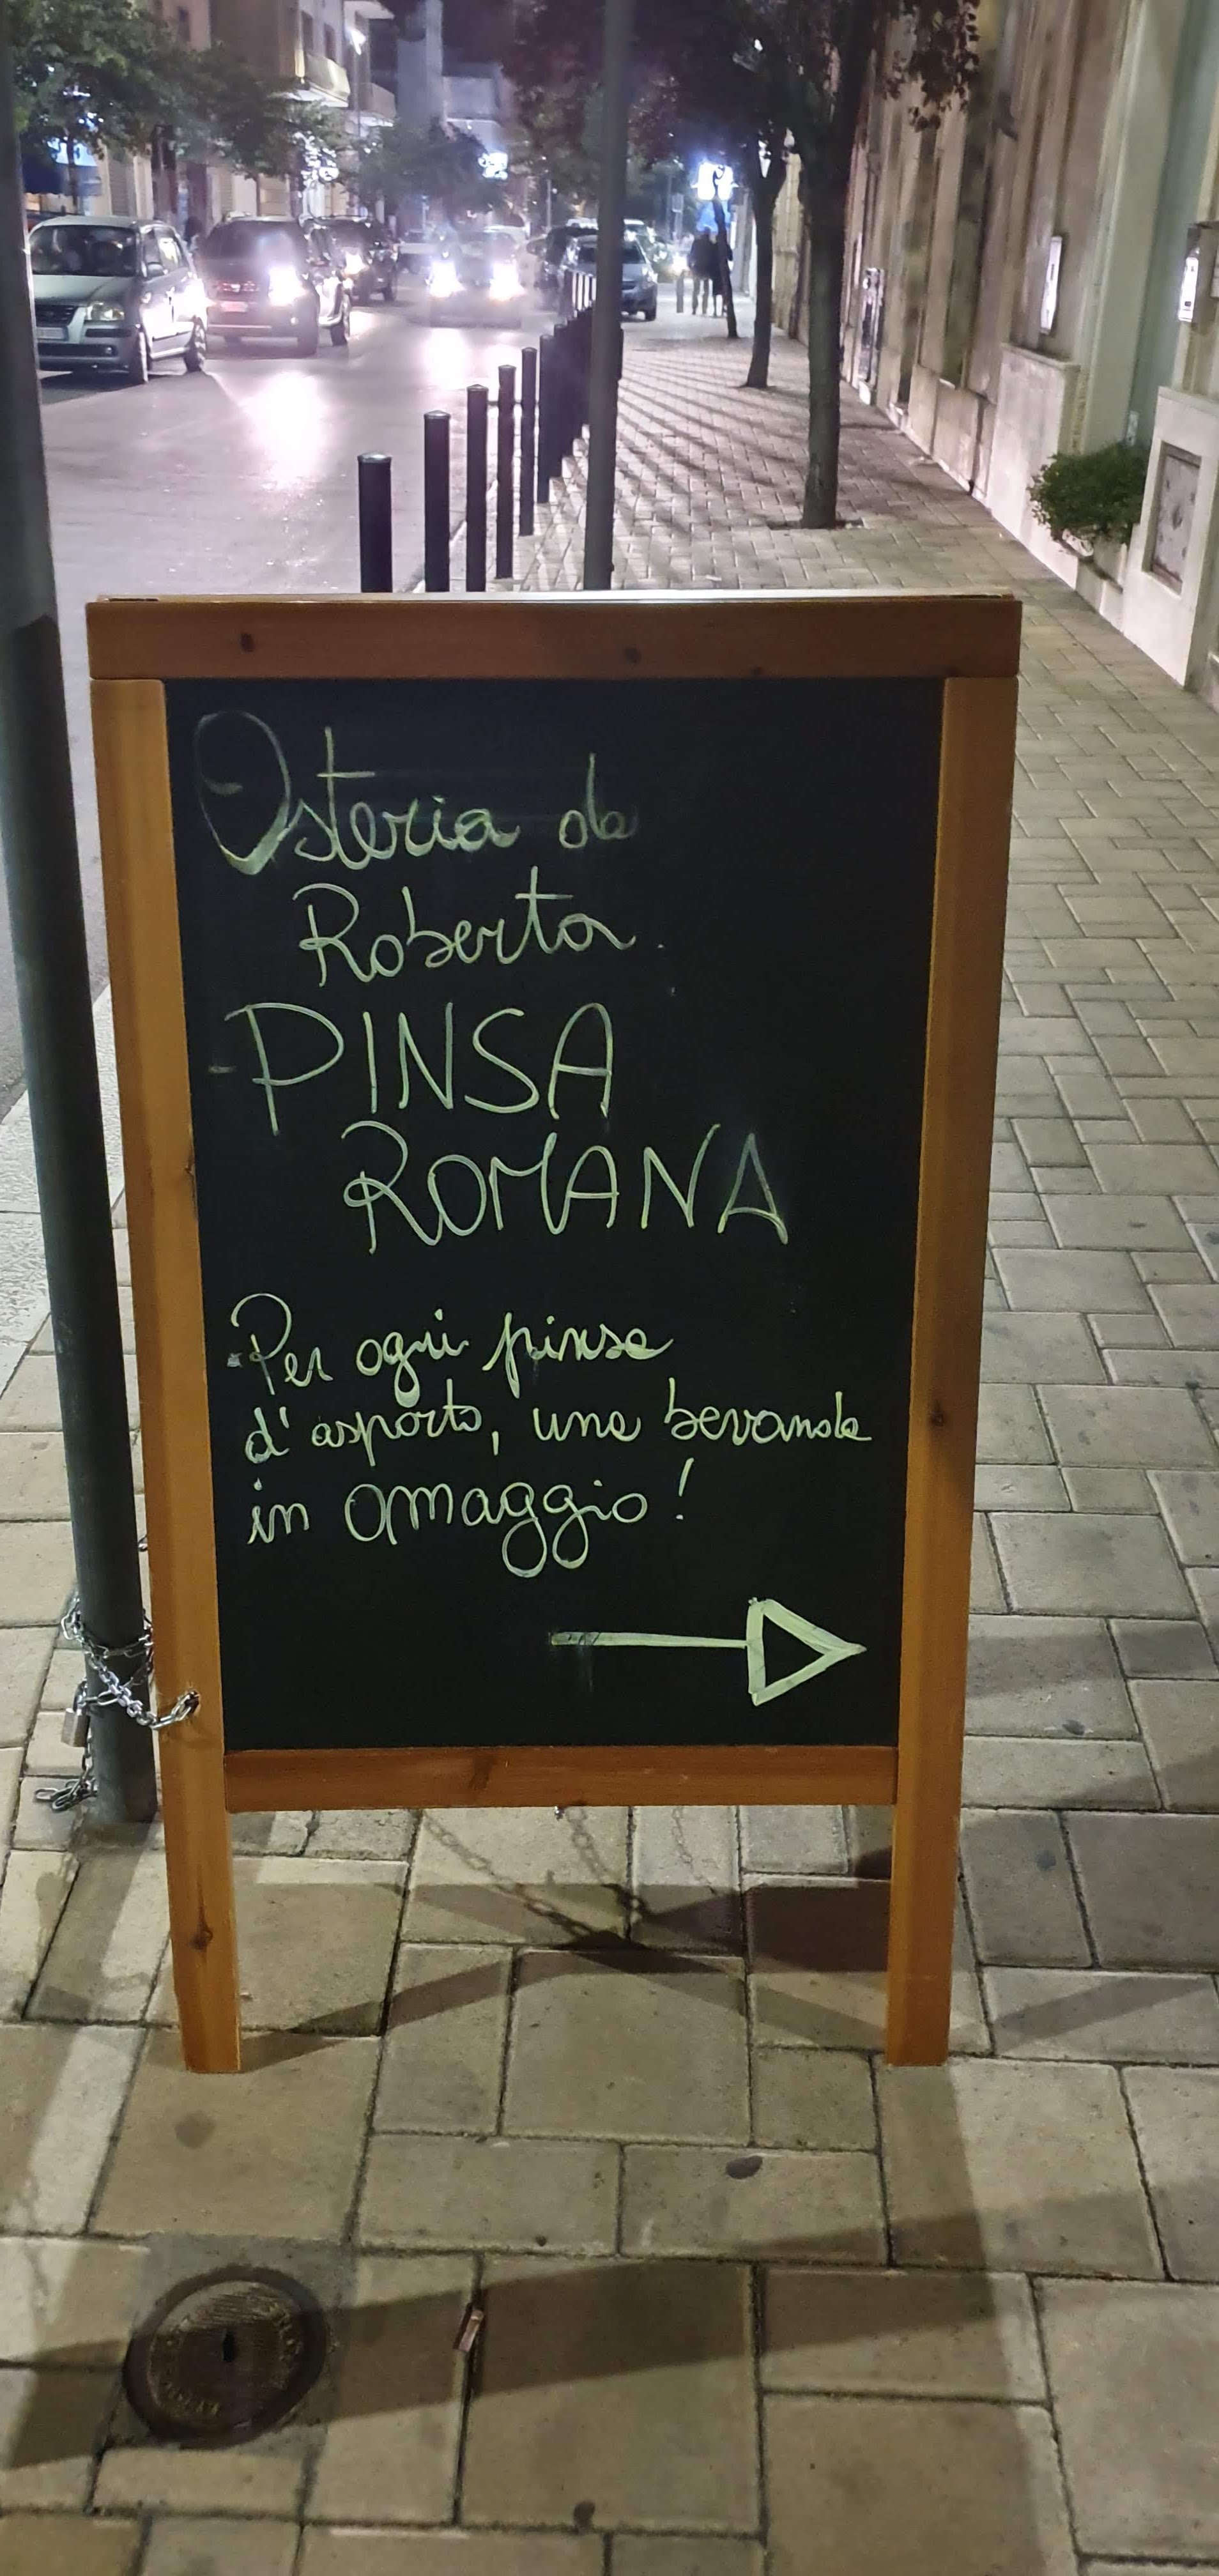 Osteria da
Roberta
-PINSA
ROMANA
Per ogni pinsa
d'asporto, una bevanda
in omaggio!